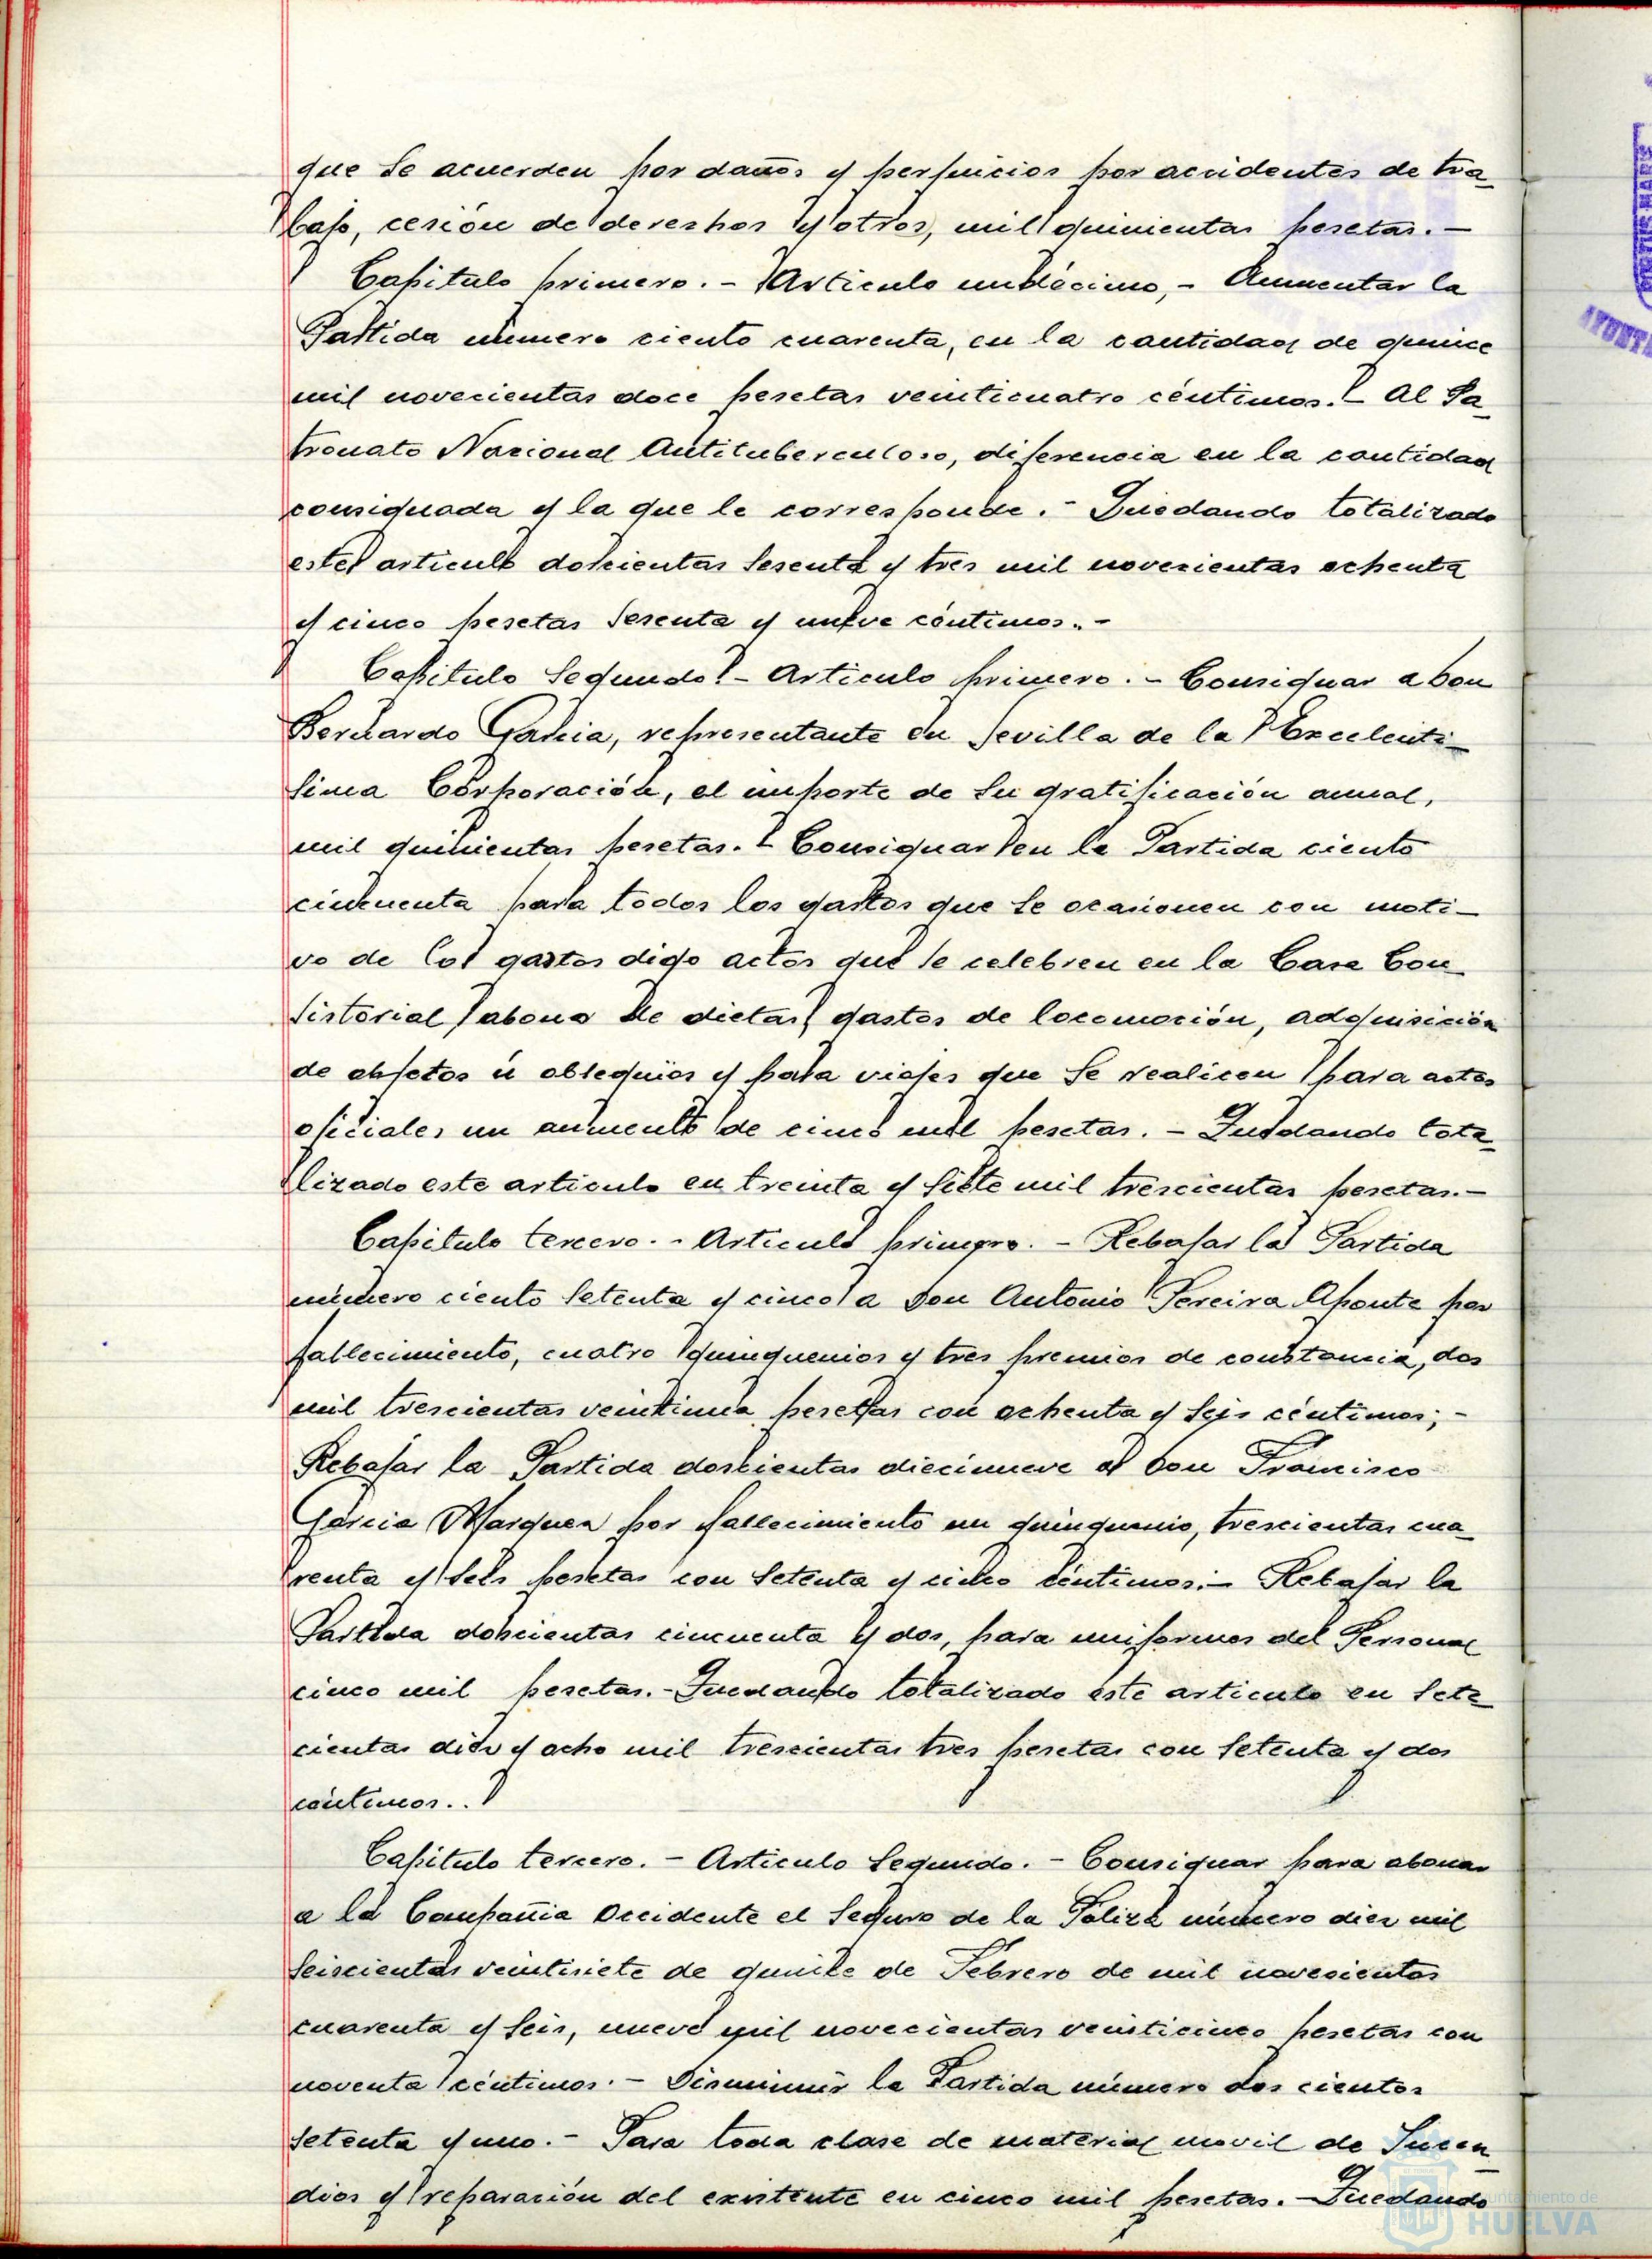 que se acuerden por daños y perjuicios por accidentes de tra-
bajo, cesión de derechos y otros, mil quinientas pesetas.-
Capitulo primero.- Articulo undécimo,- Aumentar la
Partida número ciento cuarenta, en la cantidad de quince
mil novecientas doce pesetas veinticuatro céntimos.- Al Pa-
tronato Nacional Antituberculoso, diferencia en la cantidad
consignada y la que le corresponde.- Quedando totalizado
este articulo doscientas sesenta y tres mil novecientas ochenta
y cinco pesetas sesenta y nueve céntimos.-
Capitulo segundo.- Articulo primero.- Consignar a Don
Bernardo Garcia, representante en Sevilla de la Excelenti-
sima Corporación, el importe de su gratificación anual,
mil quinientas pesetas.- Consignar en la Partida ciento
cincuenta para todos los gastos que se ocasionen con moti-
vo de los gastos digo actos que se celebren en la Casa Con-
sistorial, abono de dietas, gastos de locomoción, adquisición
de objetos ú obsequios y para viajes que se realicen para actos
oficiales un aumento de cinco mil pesetas.- Quedando tota-
lizado este articulo en treinta y siete mil trescientas pesetas.-
Capitulo tercero.- Articulo primero.- Rebajar la Partida
número ciento setenta y cinco a Don Antonio Pereira Aponte por
fallecimiento, cuatro quinquenios y tres premios de constancia, dos
mil trescientas veintiuna pesetas con ochenta y seis céntimos;-
Rebajar la Partida doscientas diecinueve a Don Francisco
Garcia Marquez por fallecimiento un quinquenio, trescientas cua-
renta y seis pesetas con setenta y cinco céntimos;- Rebajar la
Partida doscientas cincuenta y dos, para uniformes del Personal
cinco mil pesetas.- Quedando totalizado este articulo en sete-
cientas diez y ocho mil trescientas tres pesetas con setenta y dos
céntimos..
Capitulo tercero.- Articulo segundo.- Consignar para abonar
a la Compañia Occidente el Seguro de la Póliza número diez mil
seiscientas veintisiete de quince de Febrero de mil novecientos
cuarenta y seis, nueve mil novecientas veinticinco pesetas con
noventa céntimos.- Disminuir la Partida número dos cientos
setenta y uno.- Para toda clase de material movil de Incen-
dios y reparación del existente en cinco mil pesetas.- Quedando
Ayuntamiento de
HUELVA